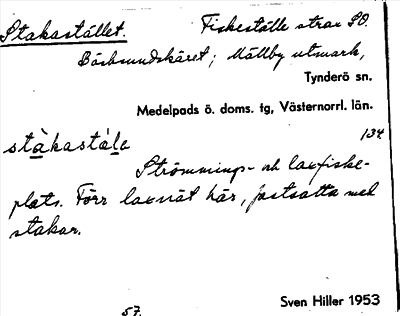 Stakastället. Fiskeställe strax SO.
Båshmundskäret; Mällby utmark,
Tynderö sn.
Medelpads ö. doms. tg, Västernorrl. län.
134
stàkastále
Strömmings- och laxfiske-
plats. Förr laxnät här, fastsatta med
stakar.
Sven Hiller 1953
57.